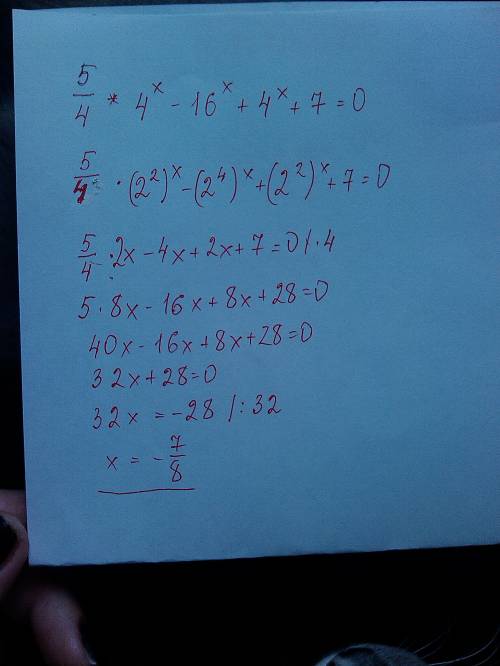 5/4 * 4^x - 16^x + 4^x + 7 = 0
5/4 · (2^2)^x - (2^4)^x + (2^2)^x + 7 = 0
5/4 · 2x - 4x + 2x + 7 = 0 / · 4
5 · 8x - 16x + 8x + 28 = 0
40x - 16x + 8x + 28 = 0
32x + 28 = 0
32x = -28 / : 32
x = - 7/8